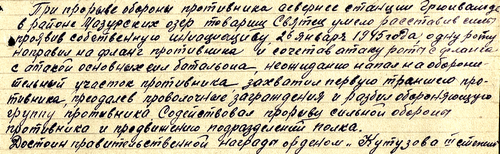 При прорыве обороны противника севернее станции Грюнвальд
в районе Мазурских озёр товарищ Святец умело расставив силы,
проявив собственную инициативу 26 января 1945 года, одну роту
направил на фланг противника и сочетав атаку роты с фланга
с атакой основных сил батальона, неожиданно напал на оборони-
тельный участок противника, захватил первую траншею про-
тивника, преодолев проволочные заграждения и разбил обороняющую
группу противника. Содействовал прорыву сильной обороны
противника и продвижению подразделений полка.
Достоин правительственной награды орденом „Кутузова III степени